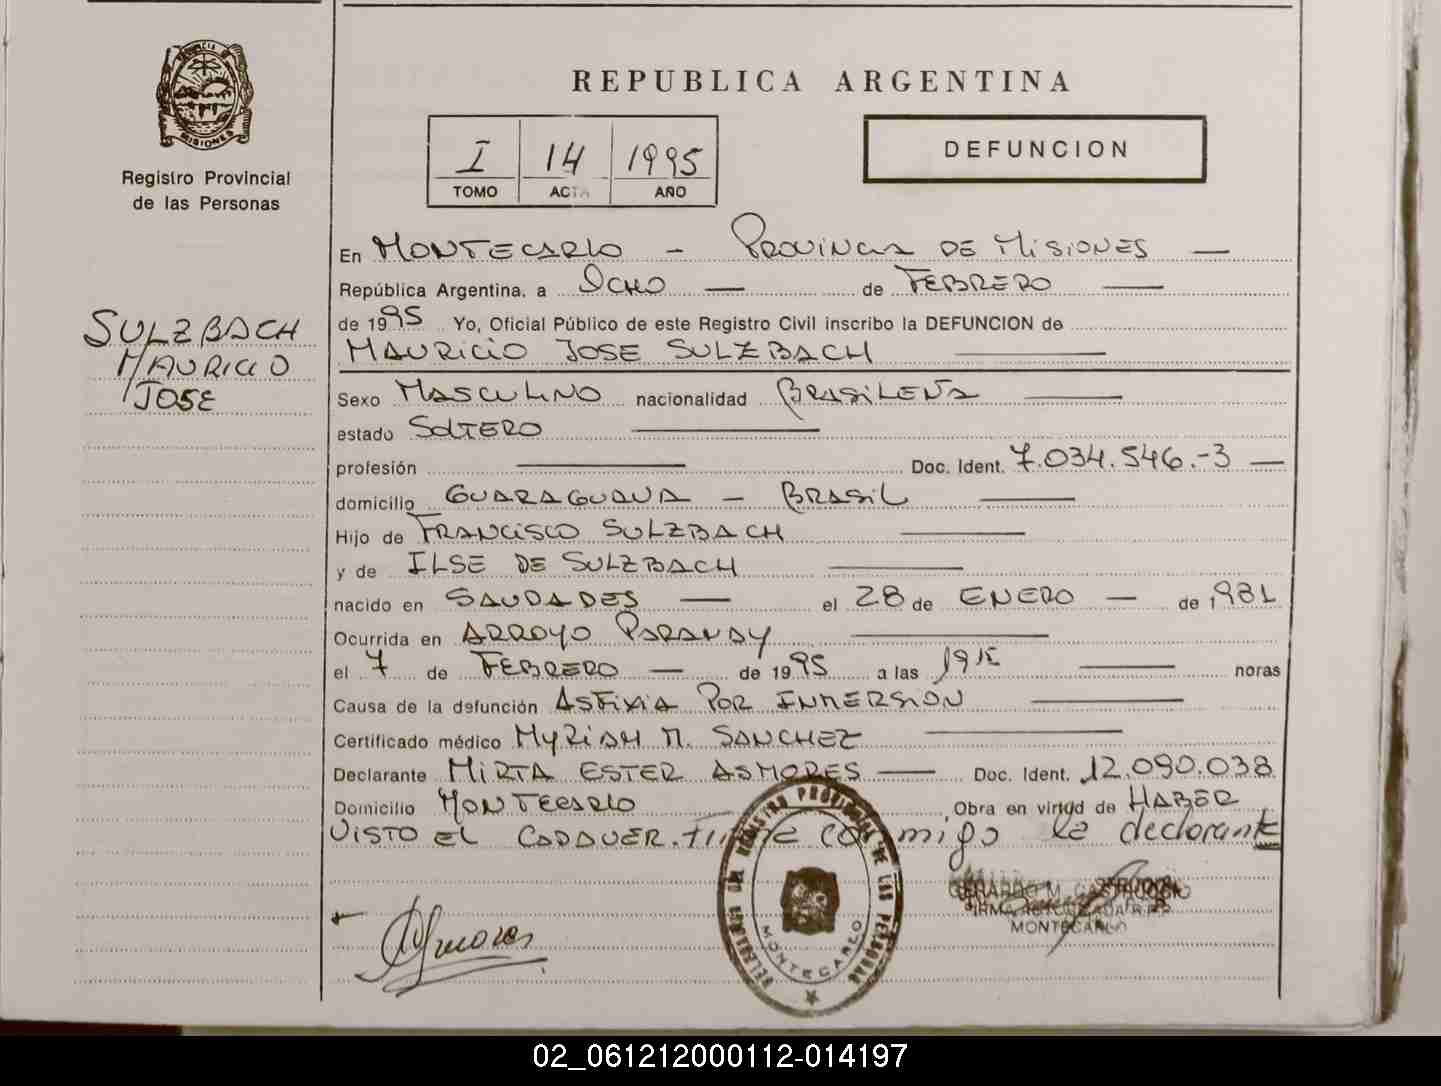 PROVINCIA DE
MISIONES
Registro Provincial
de las Personas
SULZBACH
MAURICIO
JOSE
REPUBLICA ARGENTINA
I 14 1995
TOMO ACTA AÑO
DEFUNCION
En MONTECARLO - PROVINCIA DE MISIONES —
República Argentina, a OCHO — de FEBRERO —
de 1995 Yo, Oficial Público de este Registro Civil inscribo la DEFUNCION de
MAURICIO JOSE SULZBACH —
Sexo MASCULINO nacionalidad BRASILEÑA —
estado SOLTERO —
profesión — Doc. Ident. 7.034.546.-3 —
domicilio GUARAGUAVA - BRASIL —
Hijo de FRANCISCO SULZBACH —
y de ILSE DE SULZBACH —
nacido en SAUDADES — el 28 de ENERO — de 1981
Ocurrida en ARROYO PARANAY —
el 7 de FEBRERO — de 1995 a las — horas
Causa de la defunción ASFIXIA POR INMERSION —
Certificado médico MYRIAM M. SANCHEZ —
Declarante MIRTA ESTER ASMORES — Doc. Ident. 12.090.038
Domicilio MONTECARLO, Obra en virtud de HABER
VISTO EL CADAVER. Firme conmigo la declarante
DELEGACION DEL REGISTRO PROVINCIAL DE LAS PERSONAS
MONTECARLO
GERARDO M.
FIRMA AUTORIZADA R.P.P.
MONTECARLO
02_061212000112-014197